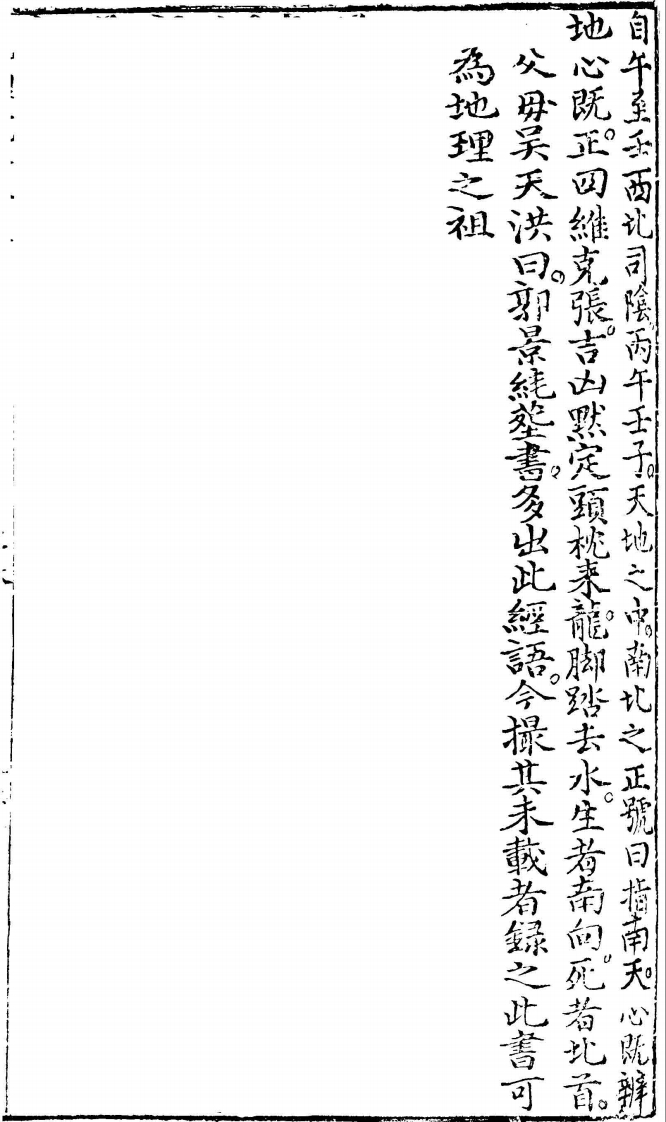 自午至壬西北司陰丙午壬子。天地之中。南北之正號曰指南天。心既辨
地心既正。四維克張。吉凶黙定頭枕来龍。脚踏去水。生者南向。死者北首。
父毋吴天洪曰。郭景純塟書。多出此經語。今撮其未載者録之此書可
為地理之祖